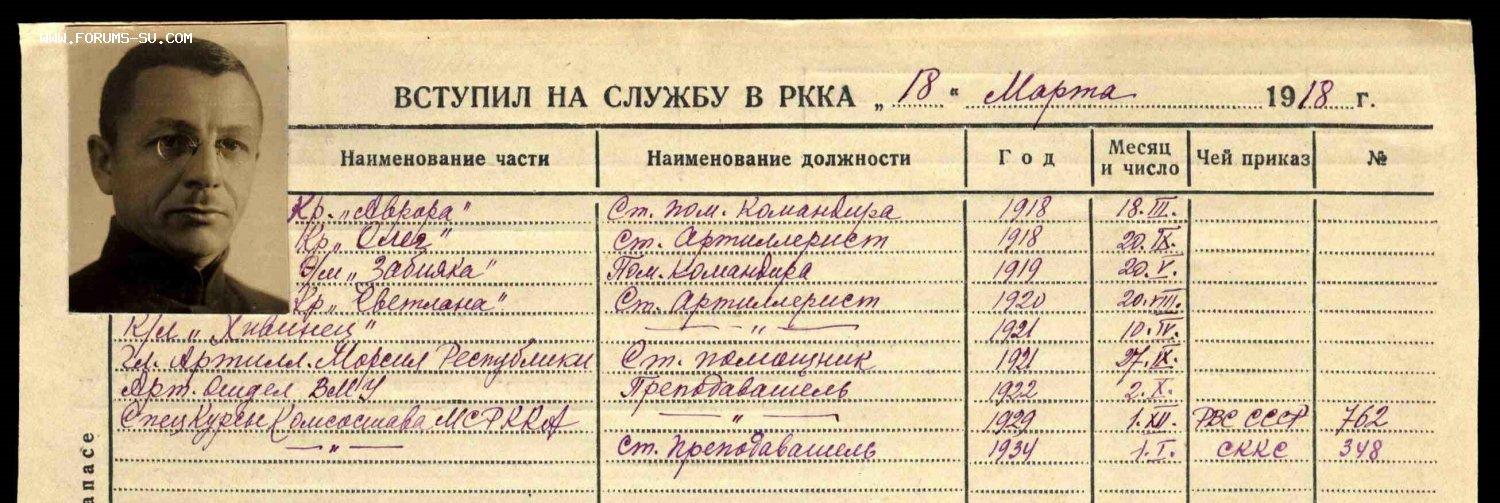 WWW.FORUMS-SU.COM
ВСТУПИЛ НА СЛУЖБУ В РККА „18“ Марта 1918 г.
Наименование части Наименование должности Год Месяц и число Чей приказ №
Кр. „Аврора" Ст. пом. Командира 1918 18.III.
Кр „Олег" Ст. Артиллерист 1918 20.IX.
Э/м „Забияка" Пом. Командира 1919 20.V.
Кр „Светлана" Ст. Артиллерист 1920 20.VIII.
К/л „Хивинец" — „ — 1921 10.IV.
Артилл. Морсил Республики Ст. помощник 1921 27.IX.
Арт. Отдел ВМУ Преподаватель 1922 2.X.
СпецКурсы Комсостава МСРККА — „ — 1929 1.XII. РВС СССР 762
— „ — Ст. Преподаватель 1934 1.I. СККС 348
апасе